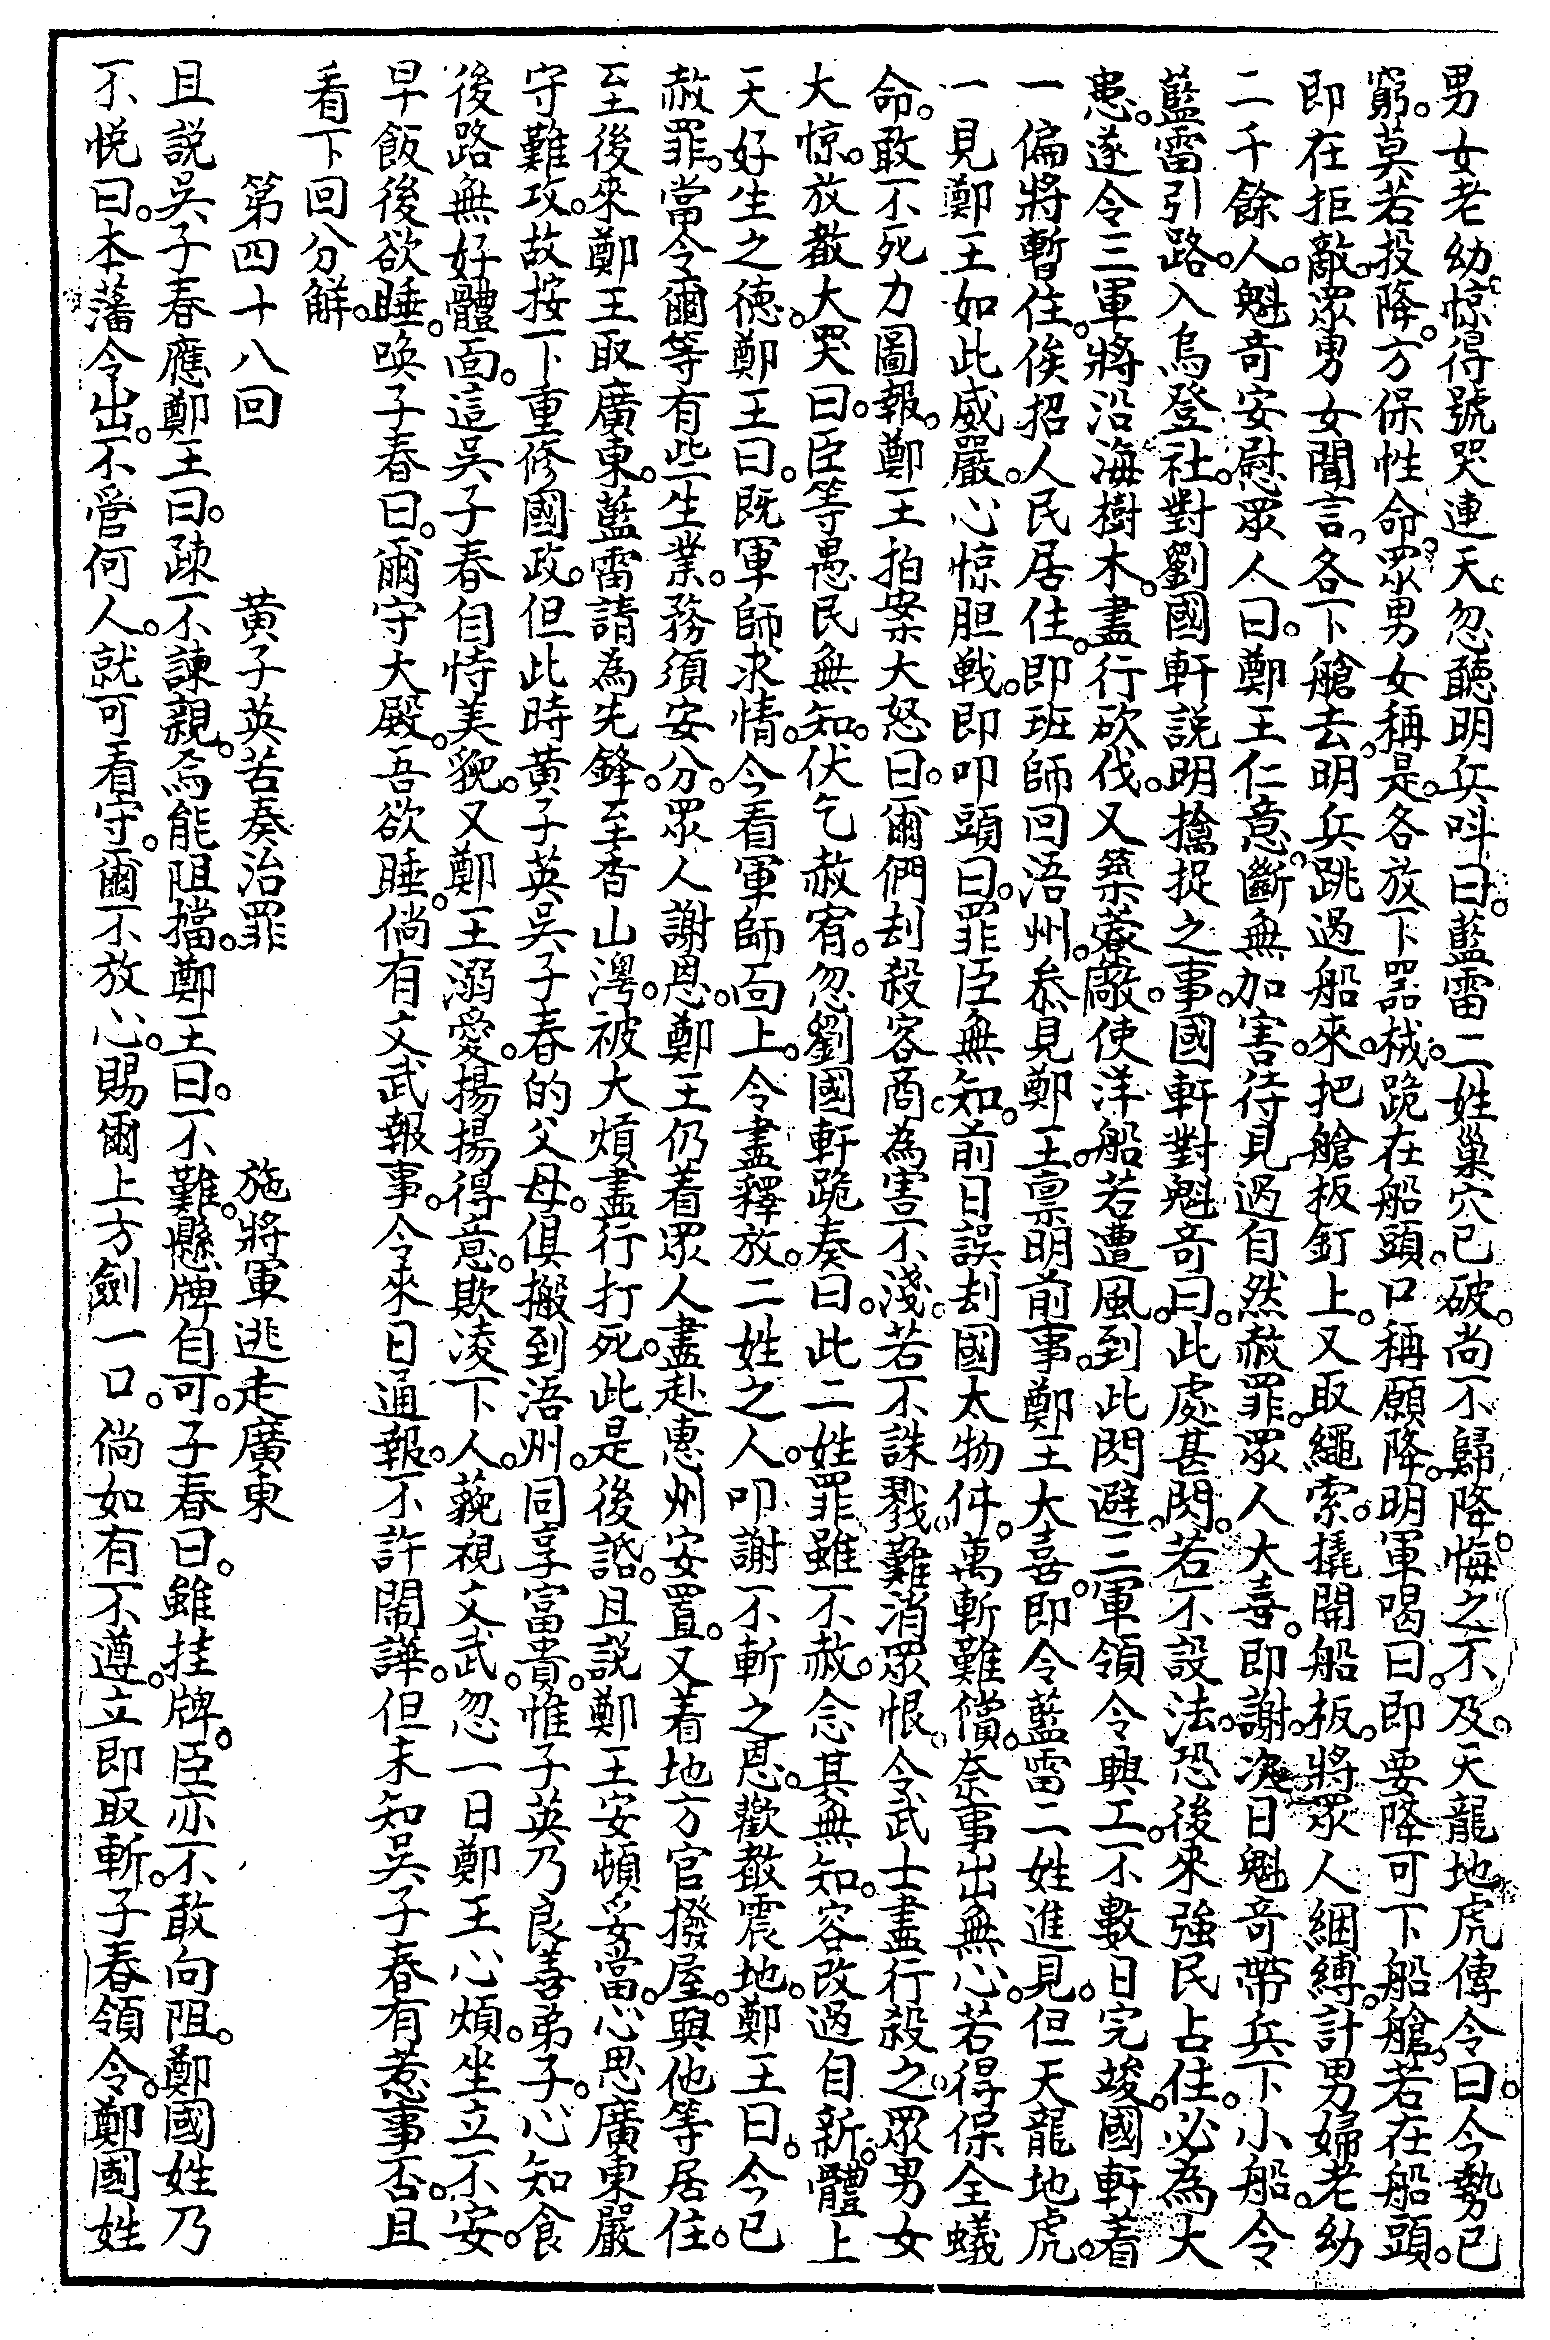 男女老幼。惊得號哭連天。忽聽明兵呌曰。藍雷二姓巢穴已破。尚不歸降。悔之不及。天龍地虎傳令曰。今勢已
窮。莫若投降。方保性命。眾男女稱是。各放下器械。跪在船頭。口稱願降。明軍喝曰。即要降可下船艙。若在船頭。
即在拒敵。眾男女聞言。各下艙去。明兵跳過船來。把艙板釘上。又取繩索。撬開船板。將眾人綑縛。計男婦老幼
二千餘人。魁竒安慰眾人曰。鄭王仁意。斷無加害。待見过自然赦罪。眾人大喜。即謝。次日魁竒帶兵下小船。令
藍雷引路。入烏登社。對劉國軒說明擒捉之事。國軒對魁竒曰。此處甚閃。若不設法。恐後來強民占住。必為大
患。遂令三軍將沿海樹木。盡行砍伐。又築藔廠。使洋船若遭風。到此閃避。三軍領令興工。不數日完竣。國軒着
一偏將暫住。俟招人民居住。即班師回浯州。叅見鄭王。禀明前事。鄭王大喜。即令藍雷二姓進見。但天龍地虎。
一見鄭王如此威嚴。心惊胆战。即叩頭曰。罪臣無知。前日誤刦國太物件。萬斬難償。奈事出無心。若得保全蟻
命。敢不死力圖報。鄭王拍案大怒曰。爾們刦殺客商。為害不淺。若不誅戮。難消眾恨。令武士盡行殺之。眾男女
大惊。放散大哭曰。臣等愚民無知。伏乞赦宥。忽劉國軒跪奏曰。此二姓罪雖不赦。念其無知。容改過自新。體上
天好生之德。鄭王曰。既軍師求情。今看軍師面上。令盡釋放。二姓之人。叩謝不斬之恩。歡散震地。鄭王曰。今已
赦罪。當令爾等有些生業。務須安分。眾人謝恩。鄭王仍着眾人盡赴惠州安置。又着地方官撥屋。與他等居住。
至後來鄭王取廣東。藍雷請為先鋒。至香山灣。被大煩盡行打死。此是後話。且說鄭王安頓妥當。心思廣東嚴
守難攻。故按下重修國政。但此時黄子英吳子春的父母。俱搬到浯州。同享富貴。惟子英乃良善弟子。心知食
後路無好體面。這吳子春自恃美貌。又鄭王溺愛。揚揚得意。欺凌下人。藐視文武。忽一日鄭王心煩。坐立不安。
早飯後欲睡。喚子春曰。爾守大殿。吾欲睡。倘有文武報事。令來日通報。不許鬧譁。但未知吳子春有惹事否。且
看下回分觧。
第四十八回　黄子英苦奏治罪　施將軍逃走廣東
且說吳子春應鄭王曰。疎不諫親。焉能阻擋。鄭王曰。不難。懸牌自可。子春曰。雖挂牌。臣亦不敢向阻。鄭國姓乃
不悦曰。本藩令出。不管何人。就可看守。爾不放心。賜爾上方劍一口。倘如有不遵。立即取斬。子春領令。鄭國姓